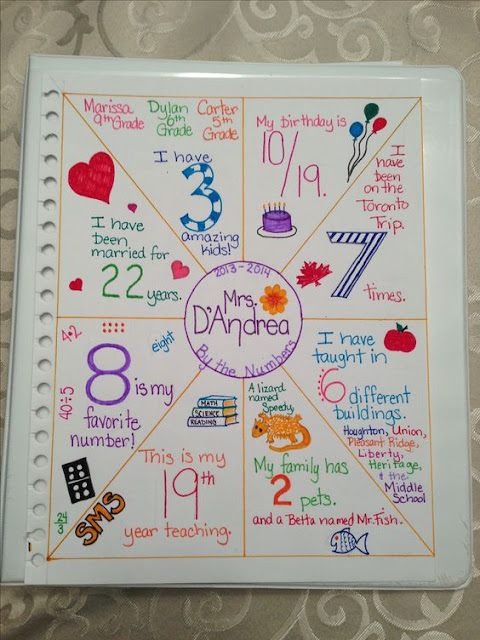 Marissa
9th Grade
Dylan
6th
Grade
Carter
5th
Grade
I have
3
amazing
kids!
My birthday is
10/19.
I
have
been
on the
Toronto
Trip.
7
times.
I have
been
married for
22 years.
2013-2014
Mrs.
D'Andrea
By the Numbers
4·2
eight
8 is my
favorite
number!
40÷5
24/3
I have
taught in
6 different
buildings.
Houghton, Union,
Pleasant Ridge,
Liberty,
Heritage,
& the
Middle
School
MATH
SCIENCE
READING
This is my
19th
year teaching.
SMS
A lizard
named
Speedy,
My family has
2
pets.
and a Betta named Mr. Fish.